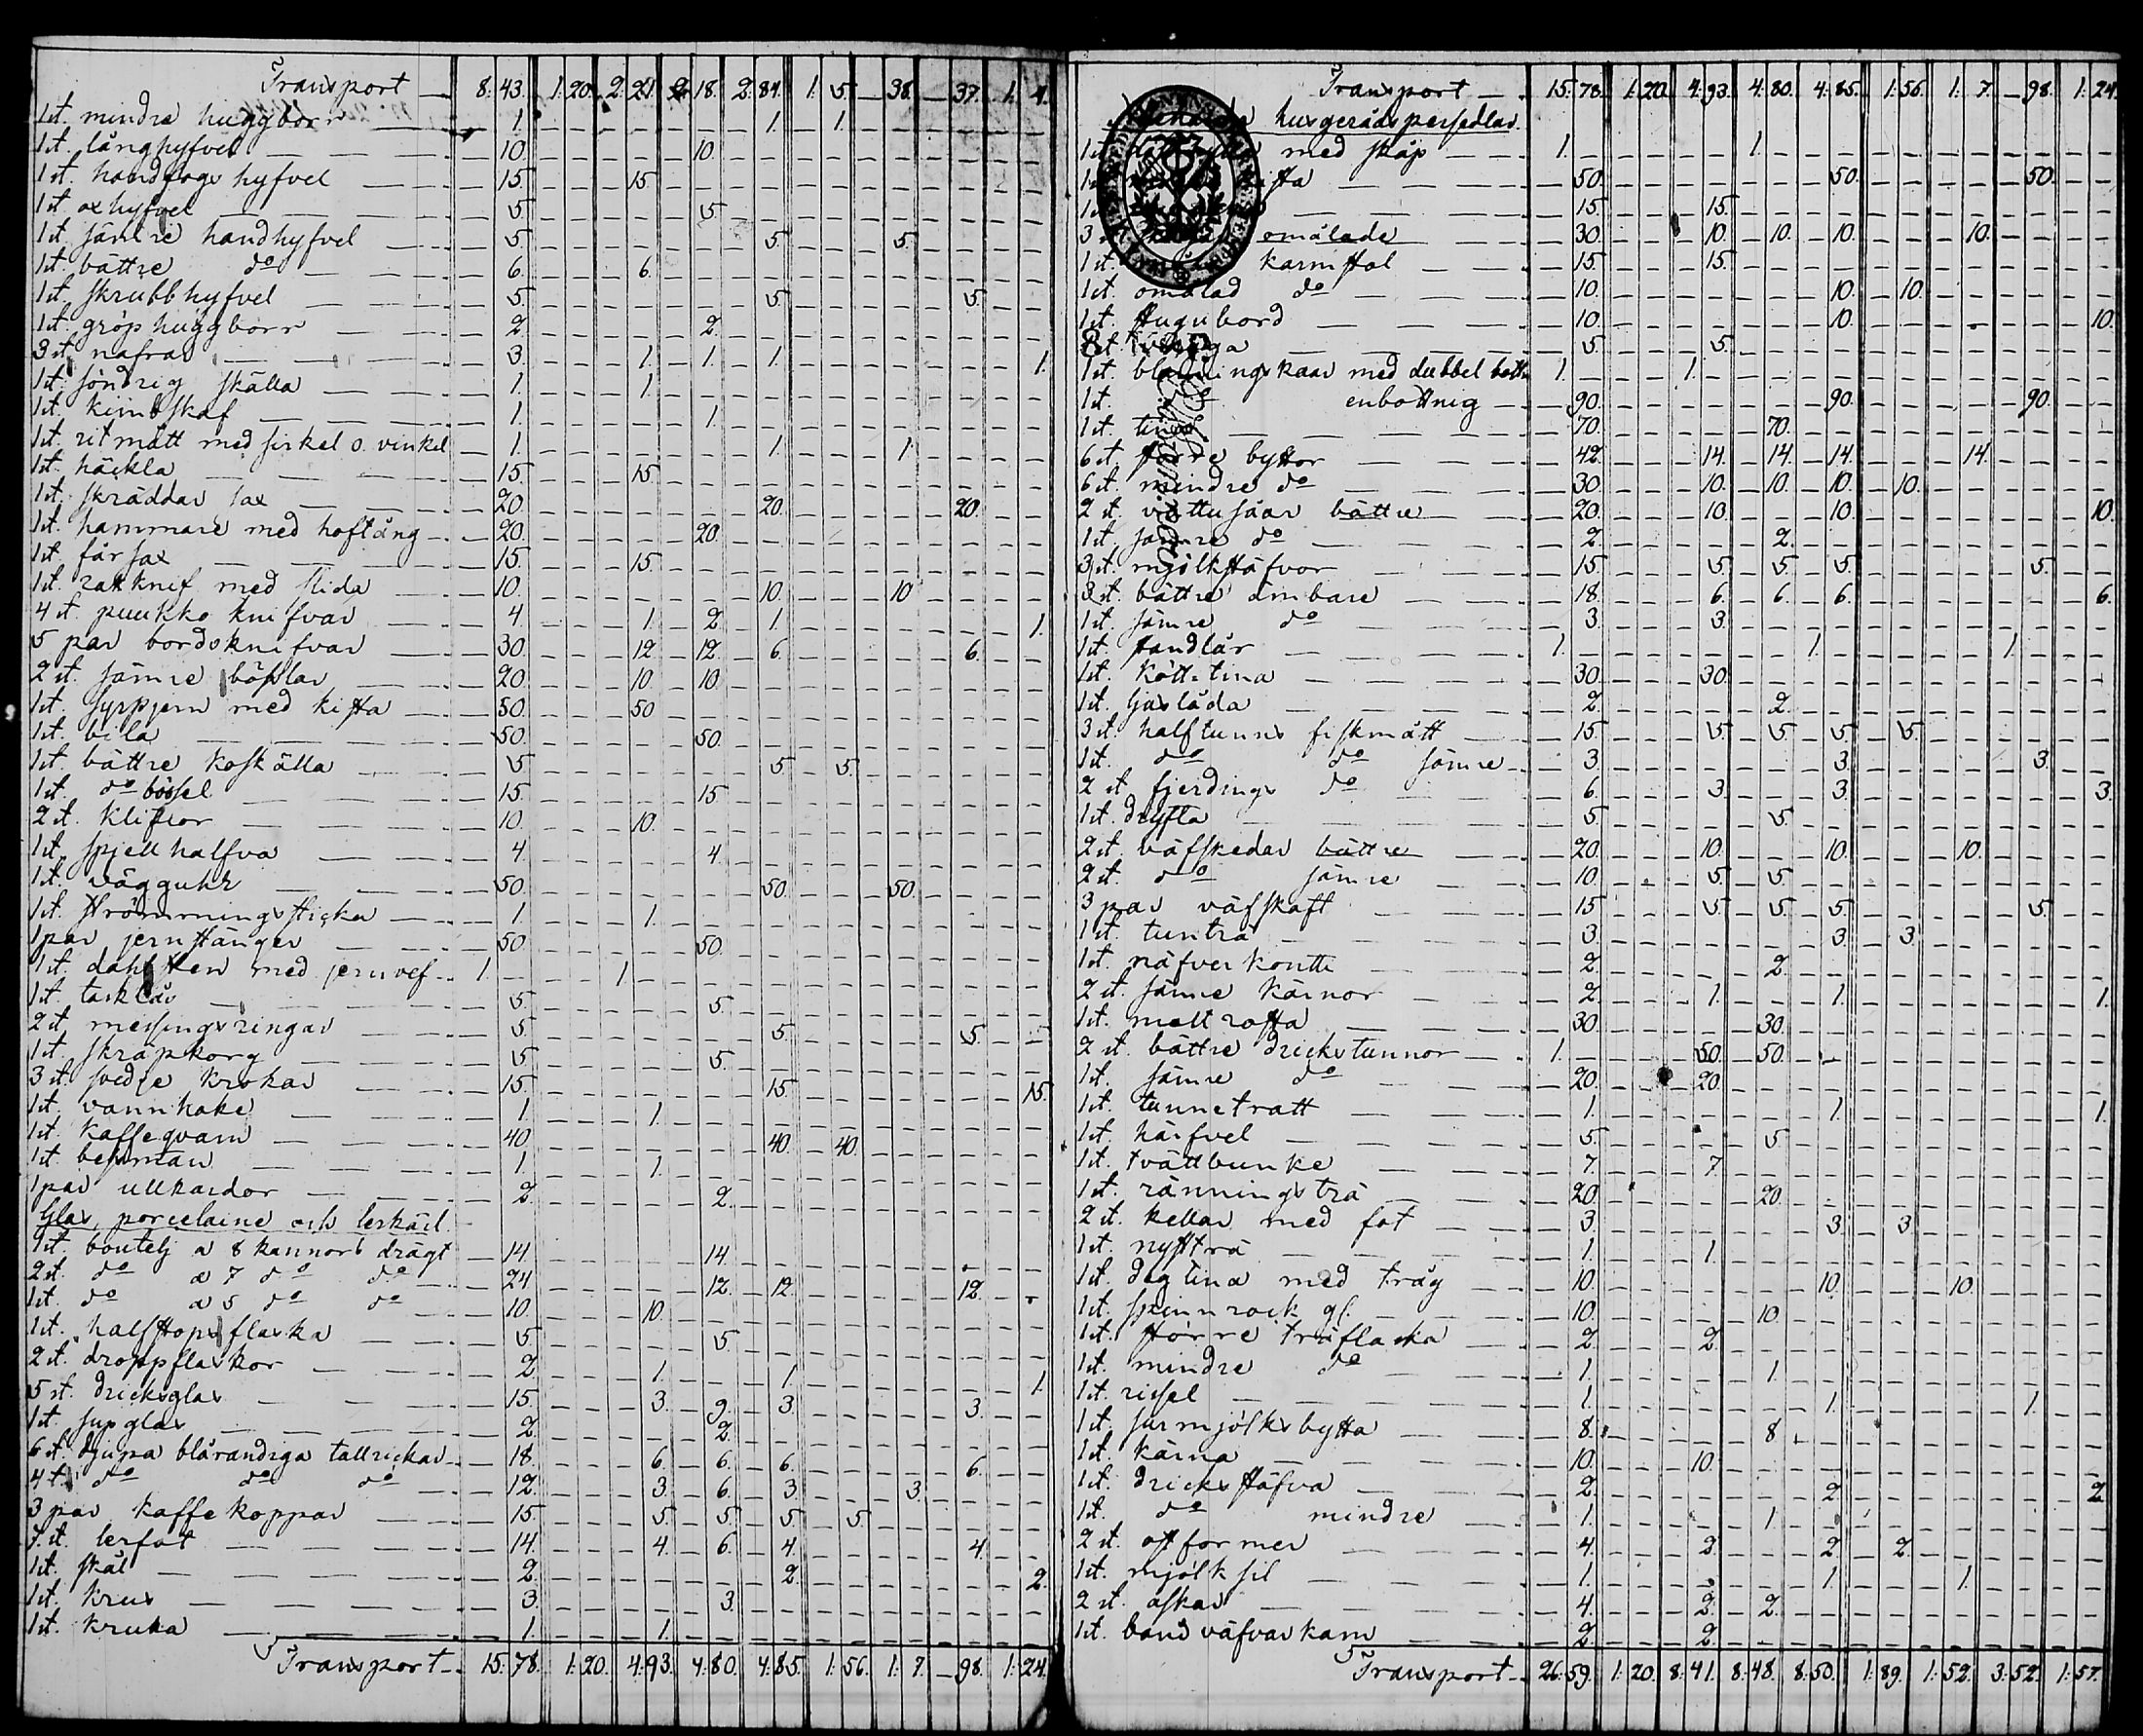 Transport — 8. 43. 1. 20. 2. 21. 2. 18. 2. 84. 1. 5. — 38. — 37. 1. 4.
1 st. mindre huggborr — 1. 1. 1.
1 st. långhyfvel — 10. 10.
1 st. handtags hyfvel — 15. 15.
1 st. oxhyfvel — 5. 5.
1 st. sämre handhyfvel — 5. 5. 5.
1 st. bättre do — 6. 6.
1 st. skrubbhyfvel — 5. 5. 5.
1 st. gröphuggborr — 2. 2.
3 st. nafrar — 3. 1. 1. 1. 1.
1 st. söndrig skälla — 1. 1.
1 st. kimbskaf — 1. 1.
1 st. ritmått med sirkel o. vinkel 1. 1. 1.
1 st. häckla — 15. 15.
1 st. skräddar sax — 20. 20. 20.
1 st. hammare med hoftång — 20. 20.
1 st. fårsax — 15. 15.
1 st. rakknif med slida — 10. 10. 10
4 st. puukko knifvar — 4. 1. 2. 1. 1.
5 par bordsknifvar — 30. 12. 12. 6. 6.
2 st. sämre bösslar — 20. 10. 10.
1 st. med kista — 50. 50
1 st. bila — 50. 50.
1 st. bättre koskälla — 5. 5. 5.
1 st. do bössel — 15. 15
2 st. — 10. 10.
1 st. spjellhalfva — 4 4.
1 st. vägguhr — 50. 50. 50.
1 st. strömmingssticka — 1. 1.
1 par jernstänger — 50 50.
1 st. med jernvef — 1. 1.
1 st. tasklås — 5. 5.
2 st. messingsringar — 5. 5. 5.
1 st. skräpkorg — 5. 5.
3 st. krokar — 15. 15. 15.
1 st. vannhake — 1. 1.
1 st. kaffeqvarn — 40. 40. 40.
1 st. bessman — 1. 1.
1 par ullkardor — 2. 2.
Glas, porcelaine och lerkäril.
1 st. boutelj a 8 kannors drägt — 14. 14.
2 st. do a 7 do do — 24. 12. 12. 12.
1 st. do a 5 do do — 10. 10.
1 st. halfstops flaska — 5. 5.
2 st. droppflaskor — 2. 1. 1. 1.
5 st. dricksglas — 15. 3. 9. 3. 3.
1 st. supglas — 2. 2.
6 st. djupa blårandiga tallrickar — 18. 6. 6. 6. 6.
4 st. do do do — 12. 3. 6. 3. 3.
3 par kaffekoppar — 15. 5. 5. 5. 5.
st. lerfat — 14. 4. 6. 4. 4.
1 st. skål — 2. 2. 2.
1 st. krus — 3. 3.
1 st. kruka — 1. 1.
Transport — 15. 78. 1. 20. 4. 93. 4. 80. 4. 85. 1. 56. 1. 7. — 98. 1. 24.
Transport — 15. 78. 1. 20. 4. 93. 4. 80. 4. 85. 1. 56. 1. 7. — 98. 1. 24.
husgerådspersedlar.
1 st. med skåp — 1. 1.
kista — 50. 50. 50.
15. 15.
3 omålade 30. 10. 10. 10. 10.
1 st. karmstol — 15. 15.
1 st. omålad do — 10. 10. 10.
1 st. stugubord — 10. 10. 10.
st. — 5. 5.
1 st. med dubbel bottn 1. 1.
1 st. do enbottnig — 90. 90. 90.
1 st. tina — 70. 70.
6 st. större byttor — 42. 14. 14. 14. 14.
6 st. mindre do — 30. 10. 10. 10. 10.
2 st. vattusåar bättre — 20. 10. 10. 10.
1 st. sämre do — 2. 2.
3 st. mjölkstäfvor — 15. 5. 5. 5. 5.
3 st. bättre ämbare — 18. 6. 6. 6. 6.
1 st. sämre do — 3. 3.
1 st. — 1. 1. 1.
1 st. kött-tina — 30. 30.
1 st. ljuslåda — 2. 2.
3 st. halftunns fiskmått — 15. 5. 5. 5. 5.
1 st. do do sämre — 3. 3. 3.
2 st. fjerdings do — 6. 3. 3. 3.
1 st. dryfta — 5. 5.
2 st. väfskedar bättre — 20. 10. 10. 10.
2 st. do sämre — 10. 5. 5.
3 par väfskaft — 15 5. 5. 5. 5.
1 st. tunträ — 3. 3. 3.
1 st. näfver kontti — 2. 2.
2 st. sämre kärnor — 2. 1. 1. 1.
1 st. — 30. 30.
2 st. bättre drickstunnor — 1. 50. 50.
1 st. sämre do — 20. 20.
1 st. tunnetratt — 1. 1. 1.
1 st. härfvel — 5. 5
1 st. tvättbunke — 7. 7
1 st. ränningsträ — 20. 20.
2 st. med fot — 3. 3. 3
1 st. nystträ — 1. 1.
1 st. degtina med tråg — 10. 10. 10.
1 st. spinnrock gl. — 10. 10.
1 st. större träflaska — 2. 2.
1 st. mindre do — 1. 1.
1 st. rissel — 1. 1. 1.
1 st. surmjölksbytta — 8. 8
1 st. kärna — 10. 10.
1 st. dricks stäfva — 2. 2. 2.
1 st. do mindre — 1. 1.
2 st. ostformer — 4. 2. 2. 2.
1 st. mjölksil — 1. 1. 1.
2 st. askar — 4. 2. 2.
1 st. band väfvarkam — 2. 2.
Transport — 26. 59. 1. 20. 8. 41. 8. 48. 8. 50. 1. 89. 1. 52. 3. 52. 1. 57.